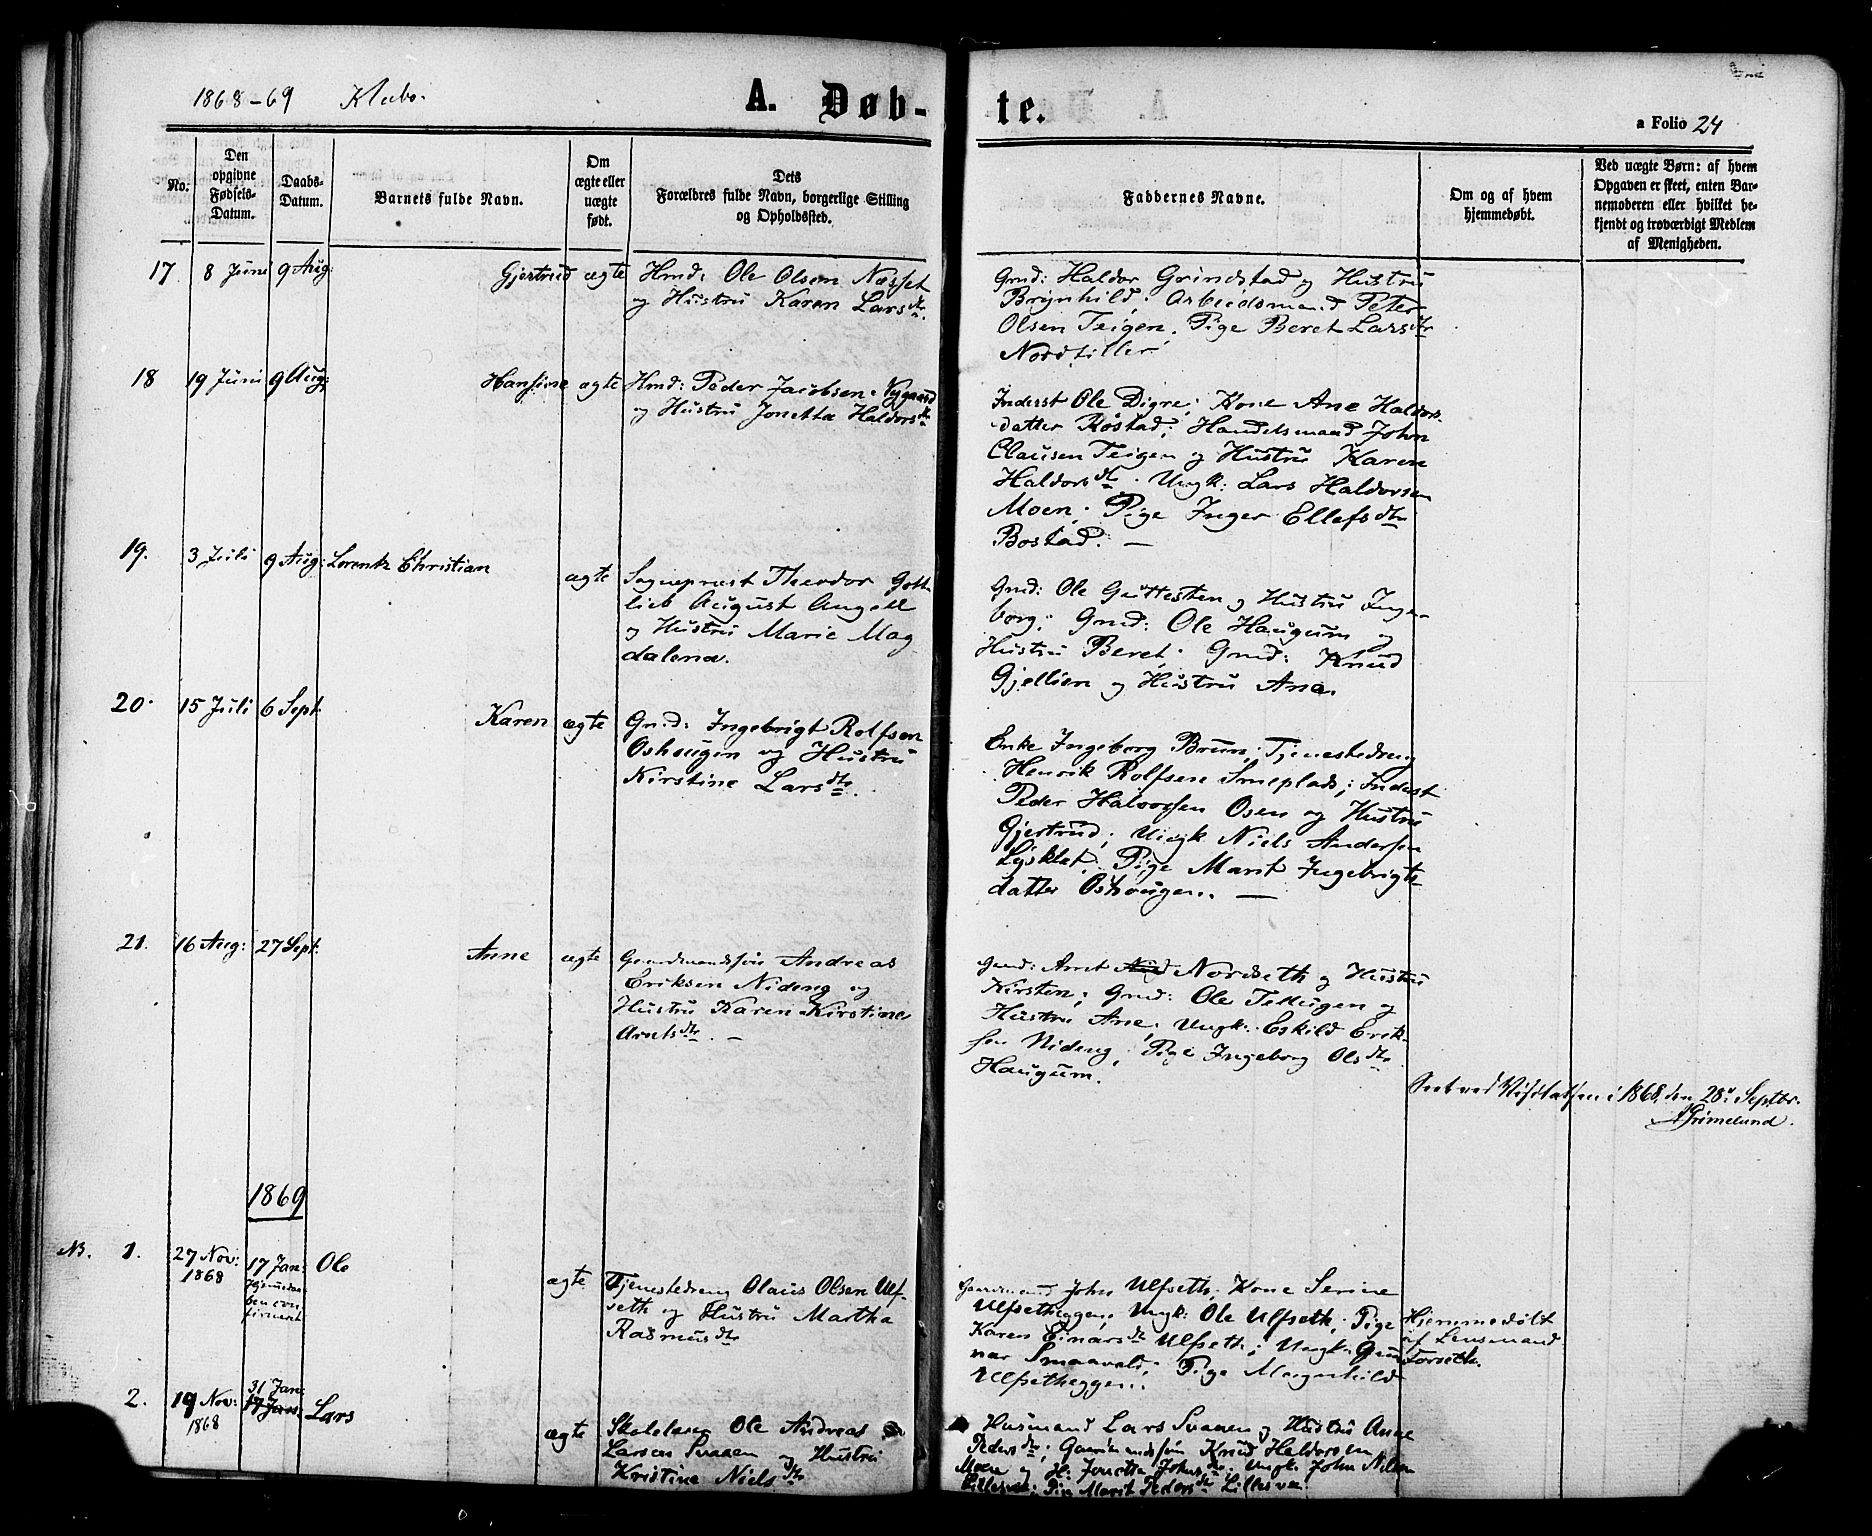 1868-69 Klæbo.
A. Døb-
te.
a Folio 24
No.
Den
opgivne
Fødsels-
Datum.
Daabs-
Datum.
Barnets fulde Navn.
Om
ægte eller
uægte
født.
Dets
Forældres fulde Navn, borgerlige Stilling
og Opholdssted.
Faddernes Navne.
Om og af hvem
hjemmedøbt.
Ved uægte Børn: af hvem
Opgaven er skeet, enten Bar-
nemoderen eller hvilket be-
kjendt og troværdigt Medlem
af Menigheden.
17 8 Juni 9 Aug: Gjertrud ægte Hmd: Ole Olsen Næsset
og Hustru Karen Larsdtr.
Gmd: Haldor Grindstad og Hustru
Brynhild; Arbeidsmand Peter
Olsen Teigen; Pige Beret Larsdtr
Nordtiller.
18 19 Juni 9 Aug: Hansine ægte Hmd: Peder Jacobsen Nygaard
og Hustru Jonetta Haldorsdtr
Inderst Ole Digre; Kone Ane Haldors
datter Rostad; Handelsmand John
Clausen Teigen og Hustru Karen
Haldorsdtr. Ungk: Lars Haldorsen
Moen; Pige Inger Ellefsdtr
Bostad. —
19. 3 Juli 9 Aug: Lorentz Christian ægte Sognepræst Theodor Gott-
lieb August Angell
og Hustru Marie Mag
dalena.
Gmd: Ole Guttesten og Hustru Inge-
borg; Gmd: Ole Haugum og
Hustru Beret. Gmd: Knud
Gjellien og Hustru Ane.
20. 15 Juli 6 Sept. Karen ægte Gmd: Ingebrigt Rolfsen
Oshougen og Hustru
Kirstine Larsdtr.
Enke Ingeborg Bruun; Tjenestedreng
Henrik Rolfsen Smeplads; Inderst
Peder Halvorsen Osen og Hustru
Gjertrud; Ungk Niels Andersen
Lysklet; Pige Marit Ingebrigts-
datter Oshougen. —
21. 16 Aug: 27 Sept. Anne ægte Gaardmandssøn Andreas
Eriksen Nideng og
Hustru Karen Kirstine
Arntsdtr. —
Gmd: Arnt Nordseth og Hustru
Kirsten; Gmd: Ole Tellugen og
Hustru Ane; Ungk: Eskild Erik-
sen Nideng; Pige Ingeborg Olsdtr
Haugum.
Seet ved Visitatsen i 1868, den 28de Septbr.
Grimelund.
1869
NB. 1. 27 Nov: 1868 17 Jan: Ole ægte Tjenestedreng Olaus Olsen Ulf-
seth og Hustru Martha
Rasmusdtr
Hjemmedaa-
ben con-
firmert
Gaardmand John Ulfseth; Kone Serine
Ulfsetheggen; Ungk: Ole Ulfseth; Pige
Karen Einarsdtr Ulfseth; Ungk: Gun
nar Smaavold; Pige Magnhild
Ulfsetheggen.
Hjemmedøbt
af Lensmand
Forseth.
2. 19 Nov: 1868 31 Jan: 17 Jan: Lars ægte Skolelærer Ole Andreas
Larsen Svaaen og Hustru
Kristine Nielsdtr
Husmand Lars Svaaen og Hustru Anne
Pedersdtr; Gaardmandssøn Knud Haldorsen
Moen og H: Jonetta Johnsdtr. Ungk: John Nilsen
Lillesve; Pige Marit Pedersdtr Lillesve